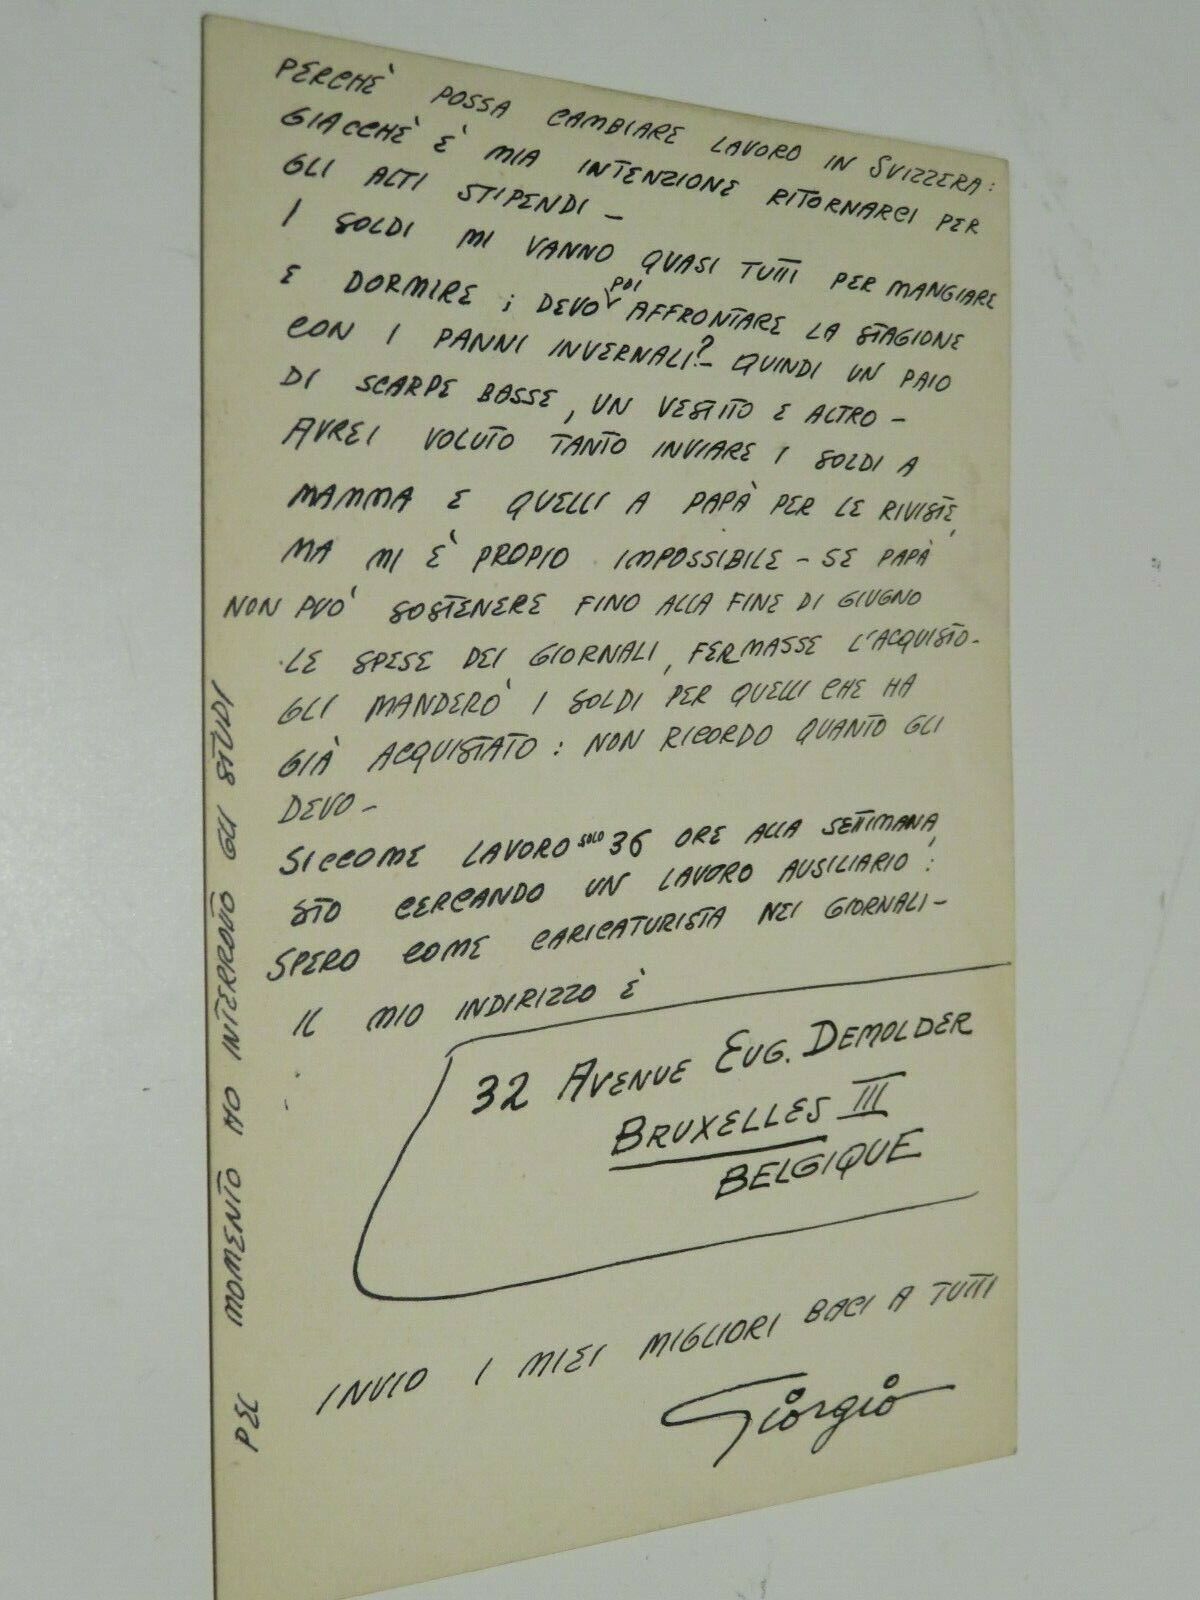 PERCHÈ POSSA CAMBIARE LAVORO IN SVIZZERA:
GIACCHÈ È MIA INTENZIONE RITORNARCI PER
GLI ALTI STIPENDI –
I SOLDI MI VANNO QUASI TUTTI PER MANGIARE
E DORMIRE ; DEVO POI AFFRONTARE LA STAGIONE
CON I PANNI INVERNALI? – QUINDI UN PAIO
DI SCARPE BASSE, UN VESTITO E ALTRO –
AVREI VOLUTO TANTO INVIARE I SOLDI A
MAMMA E QUELLI A PAPÀ PER LE RIVISTE,
MA MI È PROPIO IMPOSSIBILE – SE PAPÀ
NON PUÒ SOSTENERE FINO ALLA FINE DI GIUGNO
LE SPESE DEI GIORNALI, FERMASSE L'ACQUISTO –
GLI MANDERÒ I SOLDI PER QUELLI CHE HA
GIÀ ACQUISTATO : NON RICORDO QUANTO GLI
DEVO –
SICCOME LAVORO SOLO 36 ORE ALLA SETTIMANA,
STO CERCANDO UN LAVORO AUSILIARIO :
SPERO COME CARICATURISTA NEI GIORNALI –
IL MIO INDIRIZZO È
32 AVENUE EUG. DEMOLDER
BRUXELLES III
BELGIQUE
INVIO I MIEI MIGLIORI BACI A TUTTI
Giorgio
PEL MOMENTO HO INTERROTTO GLI STUDI